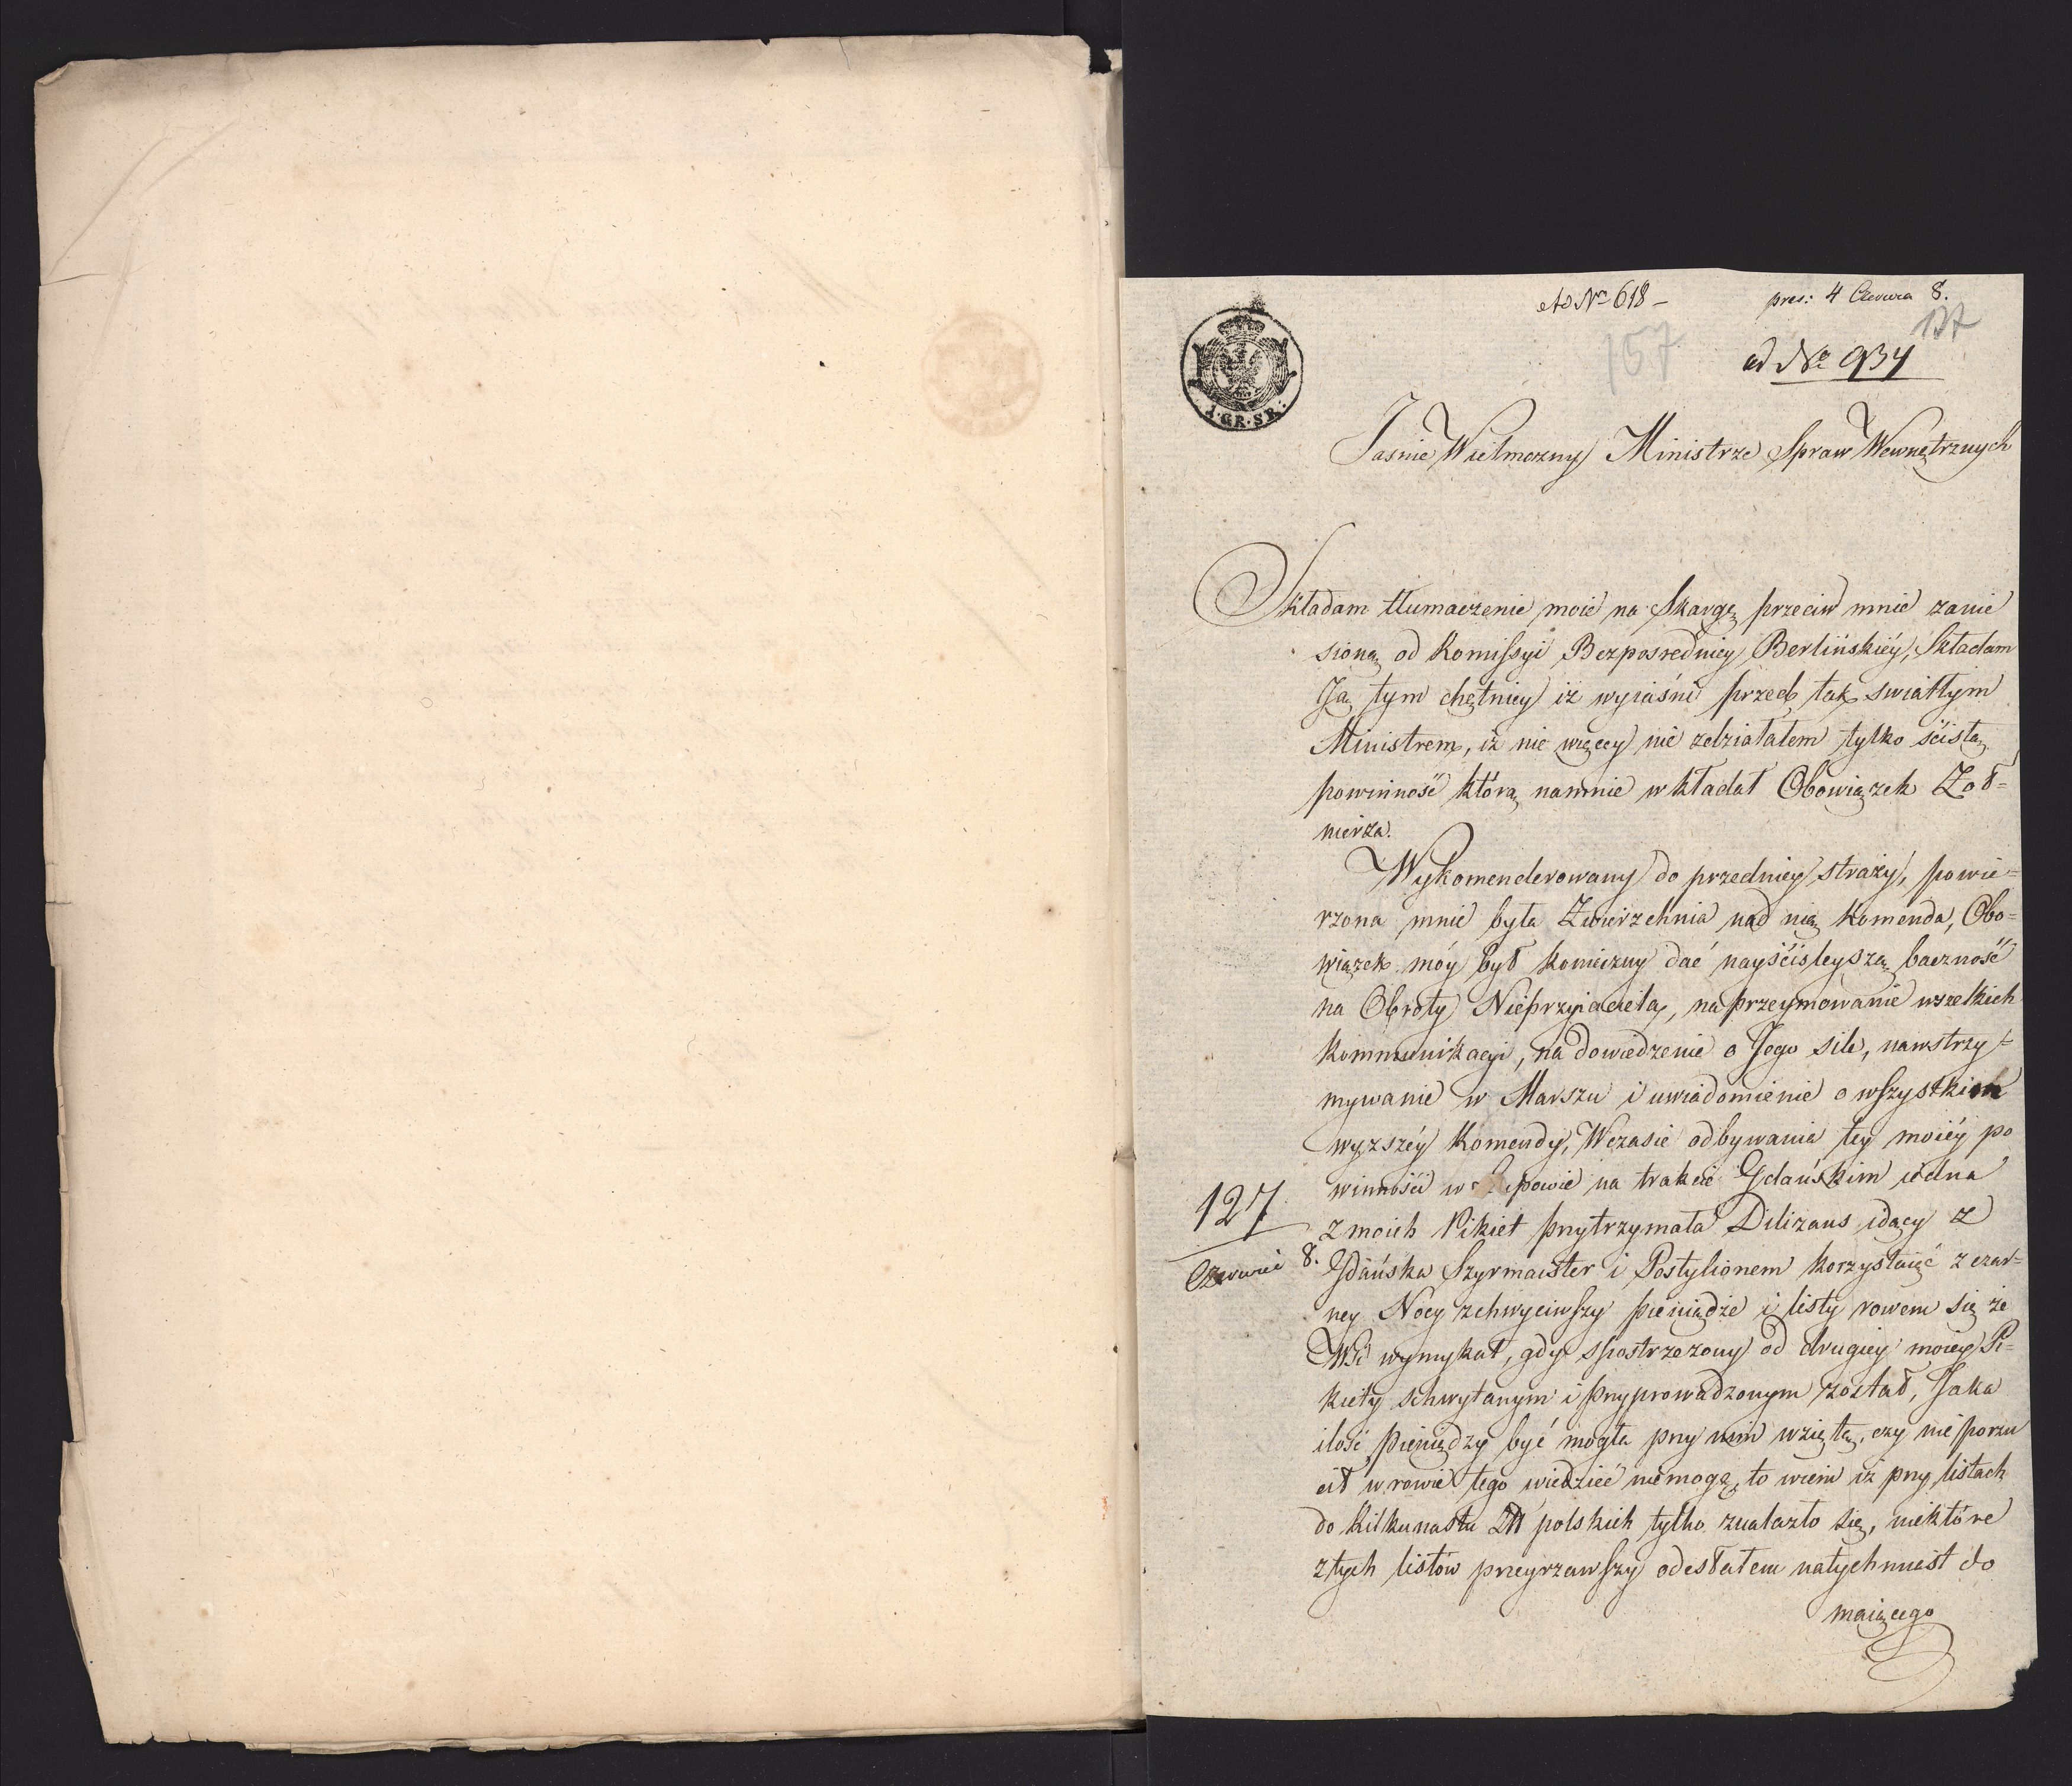 Ad Nro 618 –
pres: 4 Czerwca 8.
157
127
ad No 934
1·GR·SR:
Jasnie Wielmozny Ministrze Spraw Wewnętrznych
Składam tłumaczenie moie na Skargę przeciw mnie zanie
sioną od Komissyi Bezposredniey Berlińskiéy, Składam
Ją tym chętniey iż wyiaśni przed tak swiatłym
Ministrem, iż nic więcey nie zdziałałem tylko ścisłą
powinność którą namnie wkładał Obowiązek Żoł=
nierza.
Wykomenderowany do przedniey straży, powie=
rzona mnie była Zwierzchnia nad nią Komenda, Obo=
wiązek móy był konieczny dać nayściśleyszą baczność
na Obroty Nieprzyiaciela, na przeymowanie wszelkich
kommunikacyi, na dowiedzenie o Jego sile, nawstrzy=
mywanie w Marszu i uwiadomienie o wszystkiem
wyzszéy Komendy, Wczasie odbywania tey moiéy po
winności w na trakcie Gdańskim iedna
z moich Pikiet przytrzymała Diliżans idący z
Gdańska Szyrmaister i Postylionem korzystaiąć z czar=
ney Nocy zchwyciwszy pieniądze i listy rowem się ze
Wsi wymykał, gdy spostrzezony od drugiey moiey Pi=
kiety schwytanym i przyprowadzonym został, Jaka
ilość pieniędzy być mogła przy nim wziętą, czy nie porzu
cił w rowie tego wiedzieć niemogę, to wiem iż przy listach
do kilkunastu Zł polskich tylko znalazło się, niektóre
z tych listów przeyrzawszy odesłałem natychmiast do
maiącego
127
Czerwca 8.